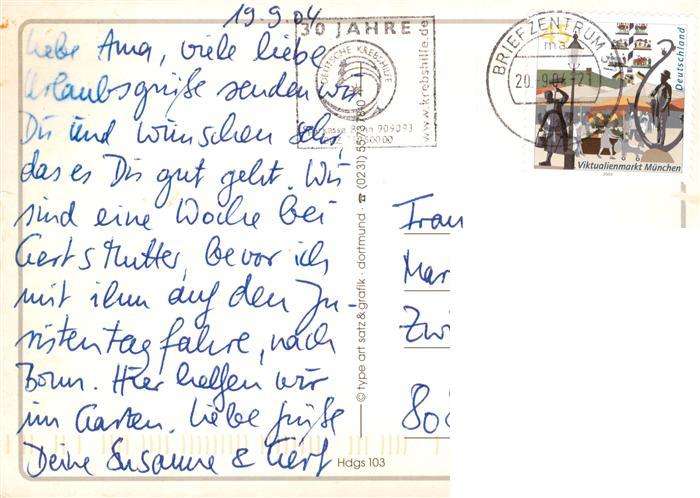 19.9.04
Liebe Ama, viele liebe
Urlaubsgrüße senden wir
Dir und wünschen sehr,
das es Dir gut geht. Wir
sind eine Woche bei
Gerts Mutter, bevor ich
mit ihm auf den Ju-
ristentag fahre, nach
Bonn. Hier helfen wir
im Garten. Liebe Grüße
Deine Susanne & Gert
30 JAHRE
DEUTSCHE KREBSHILFE
www.krebshilfe.de
909093
BRIEFZENTRUM
ma
Deutschland
Viktualienmarkt München
© type art satz & grafik · dortmund ☎ (0231)
Hdgs 103
Frau
Mar
Zwi
80